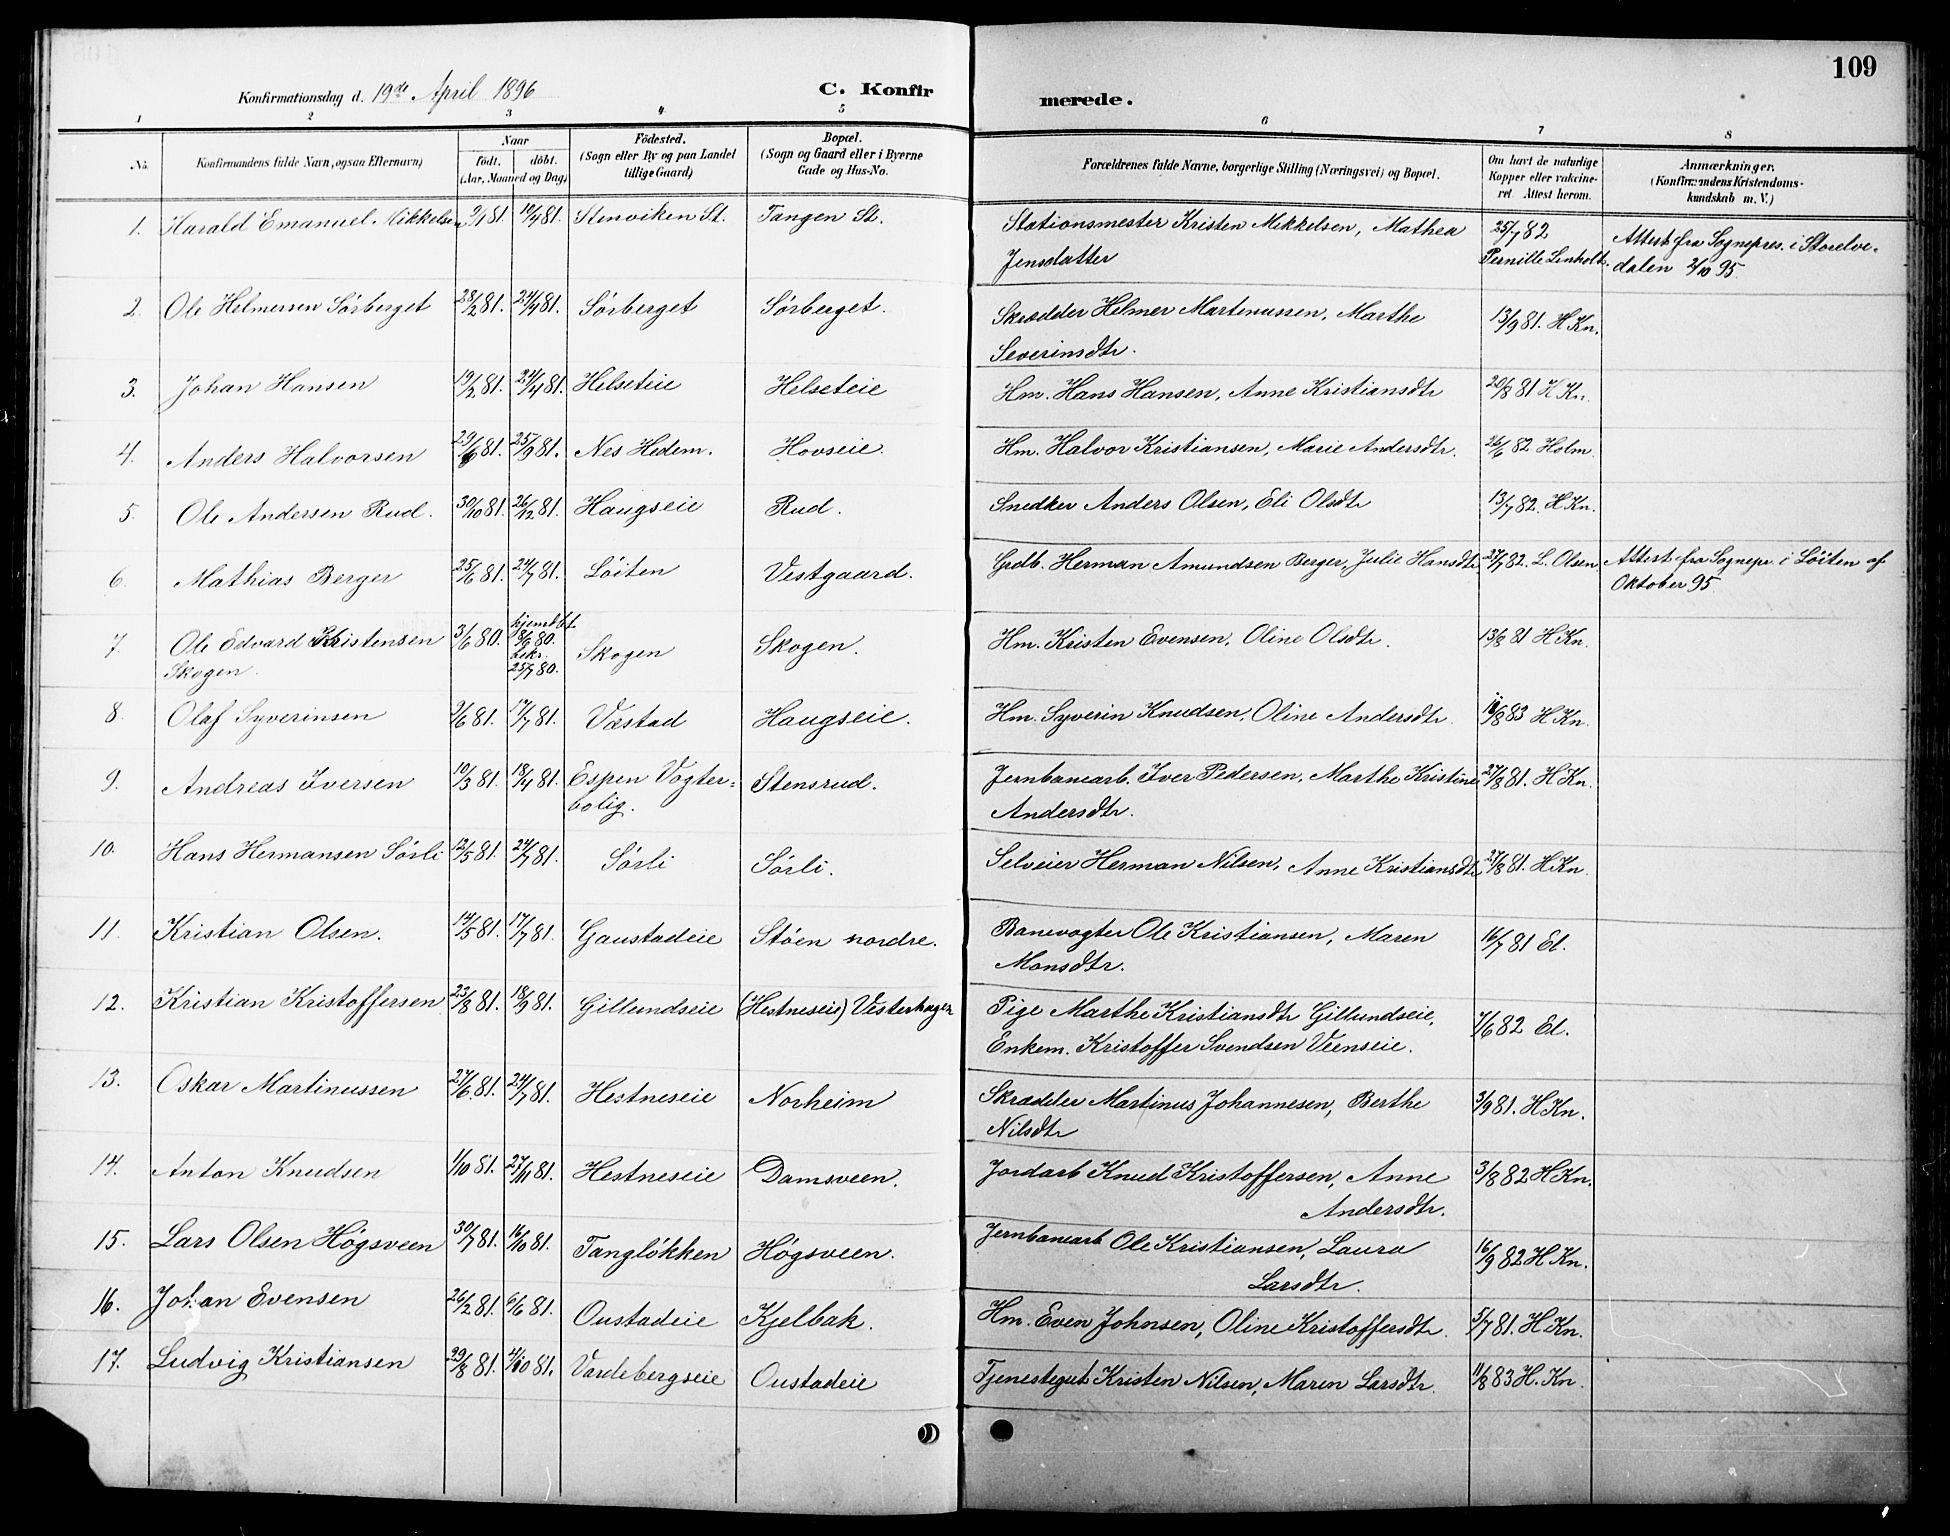 109
Konfirmationsdag d. 19de April 1896 C. Konfir merede.
1 2 3 4 5 6 7 8
No. Konfirmandens fulde Navn, ogsaa Efternavn) Naar födt. döbt. (Aar, Maaned og Dag) Födested. (Sogn eller By og paa Landet tillige Gaard) Bopæl. (Sogn og Gaard eller i Byerne Gade og Hus-No. Forældrenes fulde Navne, borgerlige Stilling (Næringsvei) og Bopæl. Om havt de naturlige Kopper eller vakcineret. Attest herom. Anmærkninger. (Konfirmandens Kristendomskundskab m. V.)
1. Harald Emanuel Mikkelsen 9/1 81. 19/4 81. Stenviken St. Tangen St. Stationsmester Kristen Mikkelsen, Mathea Jensdatter 25/7 82 Pernille Linholt. Attest fra Sognepres. i Storelvedalen 2/10 95.
2. Ole Helmersen Sørberget 28/2 81. 24/4 81. Sørberget Sørberget. Skrædder Helmer Martinussen, Marthe Severinsdtr. 13/9 81. H Kn.
3. Johan Hansen 19/2 81. 24/4 81. Helseteie Helseteie Hm. Hans Hansen, Anne Kristiansdtr 20/8 81 H Kn.
4. Anders Halvorsen 29/6 81. 25/9 81. Nes Hedem. Hovseie. Hm. Halvor Kristiansen, Marie Andersdtr. 26/6 82 Holm.
5. Ole Andersen Rud. 30/10 81. 26/12 81. Haugseie Rud. Snedker Anders Olsen, Eli Olsdtr 13/7 82. H Kn.
6. Mathias Berger 25/6 81. 24/7 81. Löiten Vestgaard. Grdb. Herman Amundsen Berger, Julie Hansdtr. 27/7 82. L. Olsen Attest fra Sognepr. i Löiten af Oktober 95.
7. Ole Edvard Kristensen Skogen. 3/6 80. hjemdbt. 8/6 80. bekr. 25/7 80. Skogen Skogen. Hm. Kristen Evensen, Oline Olsdtr. 13/8 81 H Kn.
8. Olaf Syverinsen 9/6 81. 17/7 81. Væstad Haugseie. Hm. Syverin Knudsen, Oline Andersdtr. /8 83 H Kn.
9. Andreas Iversen 10/3 81. 18/4 81. Espen Vogterbolig. Stensrud. Jernbanearb. Iver Pedersen, Marthe Kristine Andersdtr. 27/8 81. H Kn.
10. Hans Hermansen Sørli 12/5 81. 24/7 81. Sørli Sørli. Selveier Herman Nilsen, Anne Kristiansdtr. 27/8 81. H Kn.
11. Kristian Olsen. 14/5 81. 17/7 81. Gaustadeie Støen nordre. Banevogter Ole Kristiansen, Maren Monsdtr. 16/7 81 El.
12. Kristian Kristoffersen 23/8 81. 18/9 81. Gillundseie (Hestneseie) Vesterhagen Pige Marthe Kristiansdtr Gillundseie, Enkem. Kristoffer Svendsen Veenseie. 7/6 82 El.
13. Oskar Martinussen 27/6 81. 24/7 81. Hestneseie Norheim Skrædder Martinus Johannesen, Berthe Nilsdtr 3/9 81. H Kn.
14. Anton Knudsen 1/10 81. 27/11 81. Hestneseie Damsveen. Jordarb Knud Kristoffersen, Anne Andersdtr. 3/8 82 H Kn.
15. Lars Olsen Høgsveen 30/7 81. 16/10 81. Tangløkken Høgsveen. Jernbanearb Ole Kristiansen, Laura Larsdtr. 16/9 82 H Kn.
16. Johan Evensen 26/2 81. 6/6 81. Oustadeie Kjelbak. Hm. Even Johnsen, Oline Kristoffersdtr. 5/7 81. H Kn.
17. Ludvig Kristiansen 29/8 81. /10 81. Vardebergseie Oustadeie Tjenestegut Kristen Nilsen, Maren Larsdtr. 11/8 83 H. Kn.